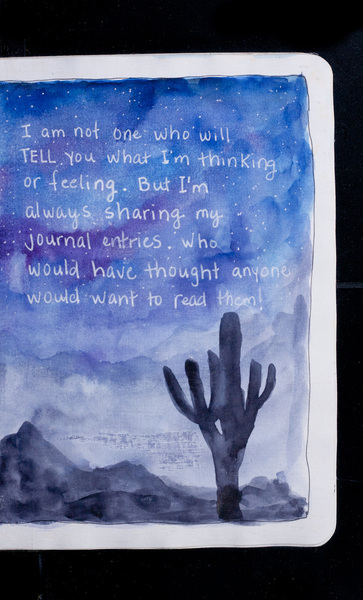 I am not one who will
TELL you what I'm thinking
or feeling. But I'm
always sharing my
journal entries. Who
would have thought anyone
would want to read them!